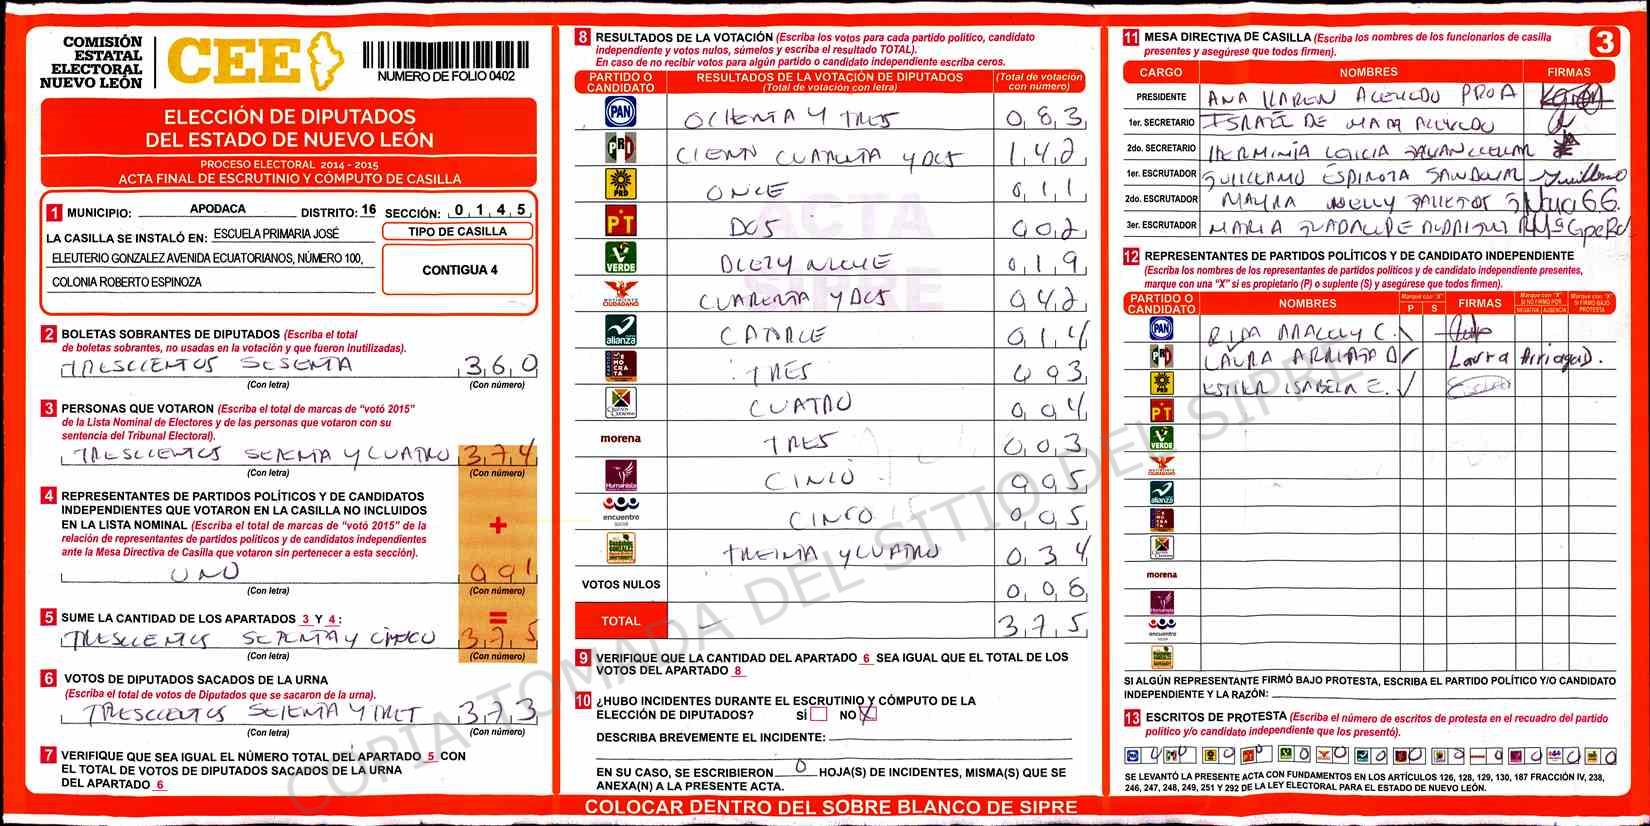 COMISIÓN
ESTATAL
ELECTORAL
NUEVO LEÓN
CEE
NUMERO DE FOLIO 0402
ELECCIÓN DE DIPUTADOS
DEL ESTADO DE NUEVO LEÓN
PROCESO ELECTORAL 2014 - 2015
ACTA FINAL DE ESCRUTINIO Y CÓMPUTO DE CASILLA
1 MUNICIPIO: APODACA DISTRITO: 16 SECCIÓN: 0 1 4 5
LA CASILLA SE INSTALÓ EN: ESCUELA PRIMARIA JOSÉ
ELEUTERIO GONZALEZ AVENIDA ECUATORIANOS, NÚMERO 100,
COLONIA ROBERTO ESPINOZA
TIPO DE CASILLA
CONTIGUA 4
2 BOLETAS SOBRANTES DE DIPUTADOS (Escriba el total
de boletas sobrantes, no usadas en la votación y que fueron inutilizadas).
TRESCIENTOS SESENTA 3 6 0
(Con letra) (Con número)
3 PERSONAS QUE VOTARON (Escriba el total de marcas de "votó 2015"
de la Lista Nominal de Electores y de las personas que votaron con su
sentencia del Tribunal Electoral).
TRESCIENTOS SETENTA Y CUATRO 3 7 4
(Con letra) (Con número)
4 REPRESENTANTES DE PARTIDOS POLÍTICOS Y DE CANDIDATOS
INDEPENDIENTES QUE VOTARON EN LA CASILLA NO INCLUIDOS
EN LA LISTA NOMINAL (Escriba el total de marcas de "votó 2015" de la
relación de representantes de partidos políticos y de candidatos independientes
ante la Mesa Directiva de Casilla que votaron sin pertenecer a esta sección).
+
UNO 0 0 1
(Con letra) (Con número)
5 SUME LA CANTIDAD DE LOS APARTADOS 3 Y 4 :
=
TRESCIENTOS SETENTA Y CINCO 3 7 5
(Con letra) (Con número)
6 VOTOS DE DIPUTADOS SACADOS DE LA URNA
(Escriba el total de votos de Diputados que se sacaron de la urna).
TRESCIENTOS SETENTA Y TRES 3 7 3
(Con letra) (Con número)
7 VERIFIQUE QUE SEA IGUAL EL NÚMERO TOTAL DEL APARTADO 5 CON
EL TOTAL DE VOTOS DE DIPUTADOS SACADOS DE LA URNA
DEL APARTADO 6
8 RESULTADOS DE LA VOTACIÓN (Escriba los votos para cada partido político, candidato
independiente y votos nulos, súmelos y escriba el resultado TOTAL).
En caso de no recibir votos para algún partido o candidato independiente escriba ceros.
PARTIDO O CANDIDATO RESULTADOS DE LA VOTACIÓN DE DIPUTADOS (Total de votación con letra) (Total de votación con número)
PAN OCHENTA Y TRES 0 8 3
PRD CIENTO CUARENTA Y DOS 1 4 2
PRD ONCE 0 1 1
PT DOS 0 0 2
VERDE DIEZ Y NUEVE 0 1 9
MOVIMIENTO CIUDADANO CUARENTA Y DOS 0 4 2
alianza CATORCE 0 1 4
DEMOCRATA TRES 0 0 3
CUATRO 0 0 4
morena TRES 0 0 3
Humanista CINCO 0 0 5
encuentro social CINCO 0 0 5
TREINTA Y CUATRO 0 3 4
VOTOS NULOS 0 0 8
TOTAL 3 7 5
ACTA
SIPRE
9 VERIFIQUE QUE LA CANTIDAD DEL APARTADO 6 SEA IGUAL QUE EL TOTAL DE LOS
VOTOS DEL APARTADO 8
10 ¿HUBO INCIDENTES DURANTE EL ESCRUTINIO Y CÓMPUTO DE LA
ELECCIÓN DE DIPUTADOS? SÍ NO X
DESCRIBA BREVEMENTE EL INCIDENTE:
EN SU CASO, SE ESCRIBIERON 0 HOJA(S) DE INCIDENTES, MISMA(S) QUE SE
ANEXA(N) A LA PRESENTE ACTA.
COLOCAR DENTRO DEL SOBRE BLANCO DE SIPRE
11 MESA DIRECTIVA DE CASILLA (Escriba los nombres de los funcionarios de casilla
presentes y asegúrese que todos firmen).
3
CARGO NOMBRES FIRMAS
PRESIDENTE ANA KAREN ACEVEDO
1er. SECRETARIO ISRAEL DE ACEVEDO
2do. SECRETARIO HERMINIA
1er. ESCRUTADOR GUILLERMO ESPINOZA SANDOVAL Guillermo
2do. ESCRUTADOR MAYRA NELLY
3er. ESCRUTADOR MARIA GUADALUPE
12 REPRESENTANTES DE PARTIDOS POLÍTICOS Y DE CANDIDATO INDEPENDIENTE
(Escriba los nombres de los representantes de partidos políticos y de candidato independiente presentes,
marque con una "X" si es propietario (P) o suplente (S) y asegúrese que todos firmen).
PARTIDO O CANDIDATO NOMBRES Marque con "X" P S FIRMAS Marque con "X" SI NO FIRMÓ POR NEGATIVA AUSENCIA Marque con "X" SI FIRMÓ BAJO PROTESTA
PAN C.
LAURA Laura
PRD ESTHER ISABELA E.
PT
VERDE
alianza
morena
encuentro
SI ALGÚN REPRESENTANTE FIRMÓ BAJO PROTESTA, ESCRIBA EL PARTIDO POLÍTICO Y/O CANDIDATO
INDEPENDIENTE Y LA RAZÓN:
13 ESCRITOS DE PROTESTA (Escriba el número de escritos de protesta en el recuadro del partido
político y/o candidato independiente que los presentó).
SE LEVANTÓ LA PRESENTE ACTA CON FUNDAMENTOS EN LOS ARTÍCULOS 126, 128, 129, 130, 187 FRACCIÓN IV, 238,
246, 247, 248, 249, 251 Y 292 DE LA LEY ELECTORAL PARA EL ESTADO DE NUEVO LEÓN.
COPIA TOMADA DEL SITIO DEL SIPRE